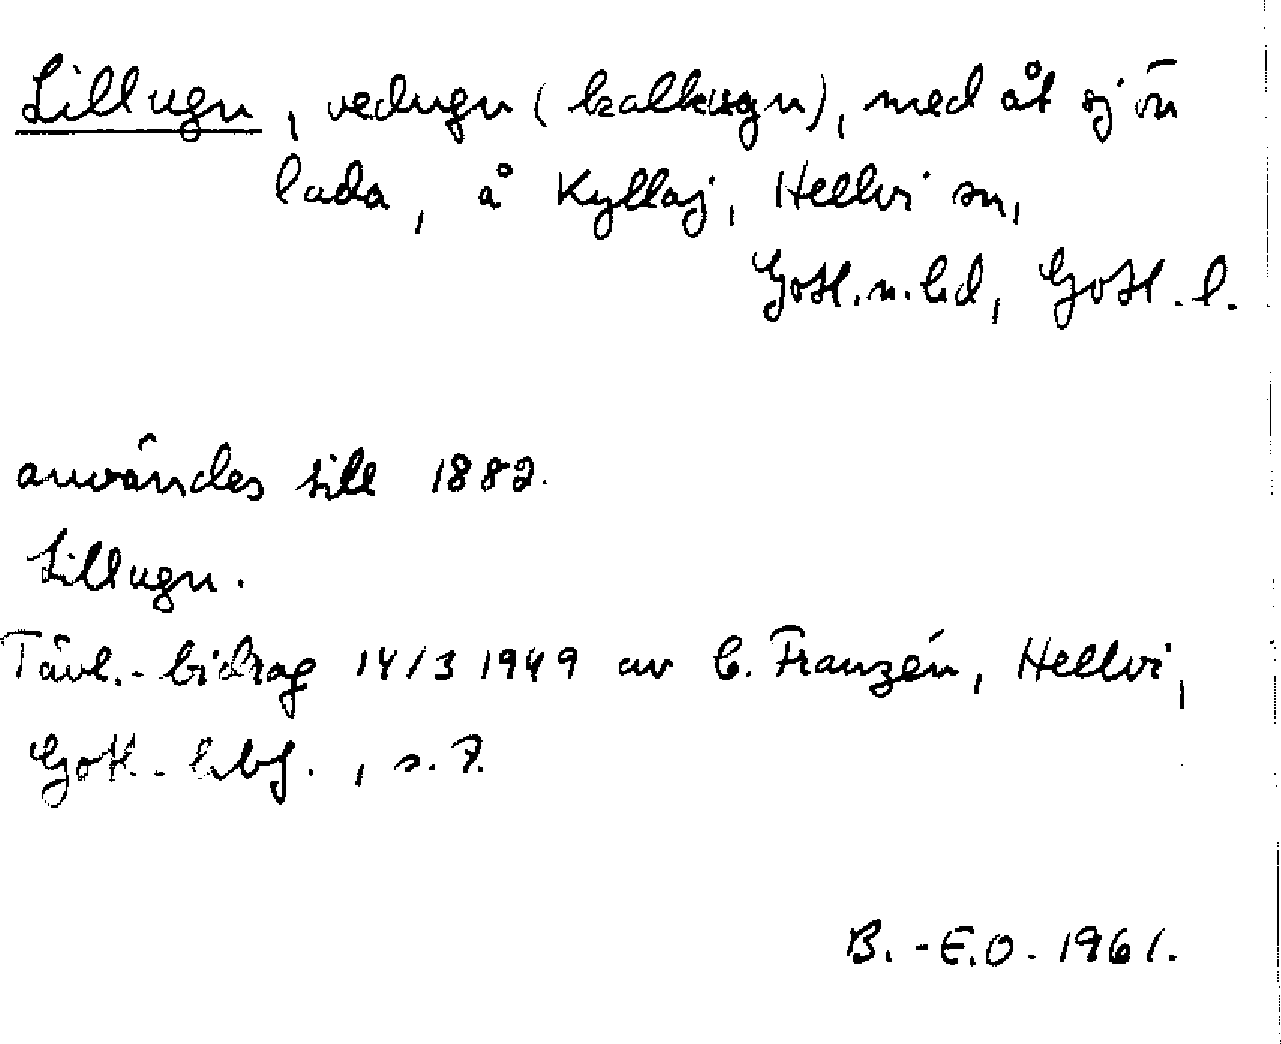 Lillugn, vedugn (kalkugn), med åt sjön
lada, å Kyllaj, Hellvi sn,
Gotl. n. hd, Gotl. l.
användes till 1882.
Lillugn.
Tävl.-bidrag 14/3 1949 av C. Franzén, Hellvi,
Gotl. hbf., s. 7.
B.-E.O. 1961.